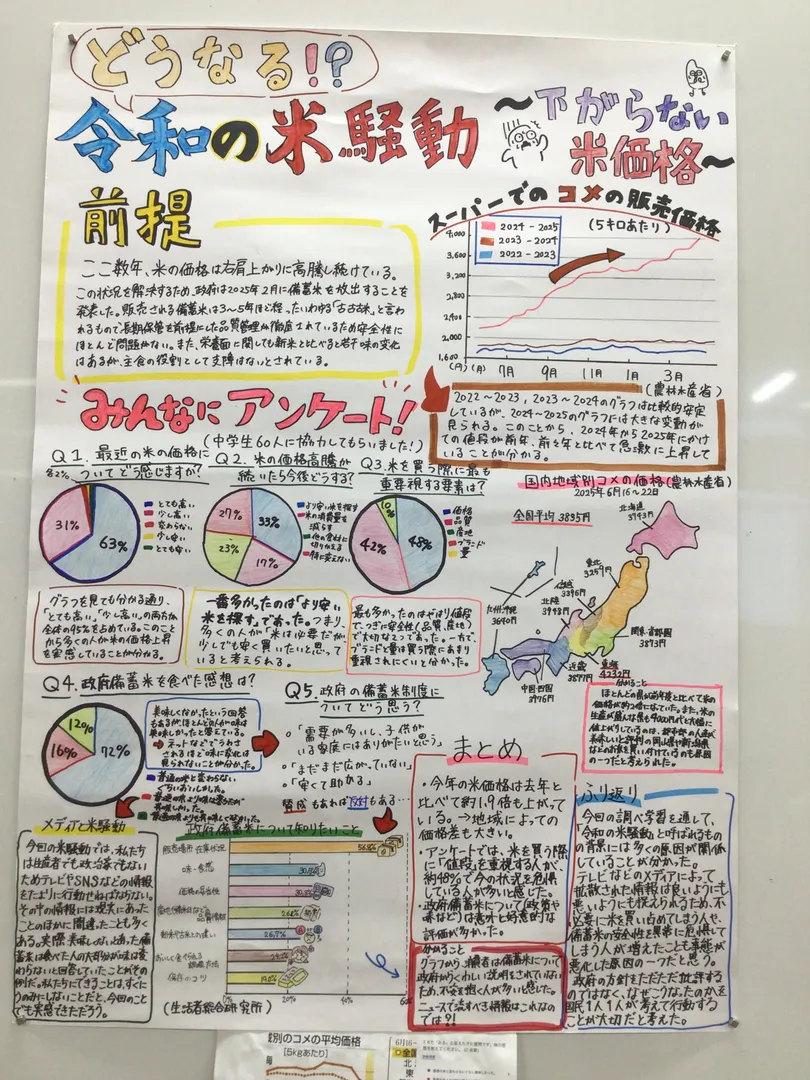 どうなる!?
令和の米騒動
〜下がらない
米価格〜
前提
ここ数年、米の価格は右肩上がりに高騰し続けている。
この状況を解決するため、政府は2025年2月に備蓄米を放出することを
発表した。販売される備蓄米は3〜5年ほど経ったいわゆる「古古古米」と言わ
れるもので長期保管を前提にした品質管理が徹底されているため安全性に
ほとんど問題がない。また、栄養面に関しても新米と比べると若干味の変化
はあるが、主食の役割として支障はないとされている。
スーパーでのコメの販売価格
(5キロあたり)
2024-2025
2023-2024
2022-2023
4,000
3,600
3,200
2,800
2,400
2,000
1,600
(円)(月) 7月 9月 11月 1月 3月
(農林水産省)
2022〜2023、2023〜2024のグラフは比較的安定
しているが、2024〜2025のグラフには大きな変動が
見られる。このことから、2024年から2025年にかけ
ての値段が前年、前々年と比べて急激に上昇して
いることが分かる。
みんなにアンケート!
(中学生60人に協力してもらいました!)
Q1.最近の米の価格に
ついてどう感じますか?
31%
63%
とても高い
少し高い
変わらない
少し安い
とても安い
グラフを見ても分かる通り、
「とても高い」「少し高い」の両方が
全体の95%を占めている。このこと
から多くの人が米の価格上昇
を実感していることが分かる。
Q2.米の価格高騰が
続いたら今後どうする?
27%
33%
23%
17%
より安い米を探す
米の消費量を
減らす
他の食材に
切りかえる
特に変えない
一番多かったのは「より安い
米を探す」であった。つまり、
多くの人が「米は必要だが、
少しでも安く買いたいと思って
いると考えられる。
Q3.米を買う際に最も
重要視する要素は?
10%
42%
48%
価格
品質
産地
ブランド
量
最も多かったのはやはり値段
で、つぎに安全性(品質、産地)
で大切な2つであった。一方で、
ブランドと量は買う際にあまり
重視されにくいと分かった。
国内地域別コメの価格(農林水産省)
2025年6月16〜22日
全国平均 3835円
北海道
3743円
東北
3259円
信越
北陸
九州・沖縄
3640円
関東・首都圏
3893円
近畿
3877円
東海
4232円
中国・四国
3976円
分かること
Q4.政府備蓄米を食べた感想は?
12%
16%
72%
美味しくなかったという回答
もあるが、ほとんどの人が味は
美味しかったと答えている。
⇒ネットなどでうわさ
されるほど味の劣化は
見られないことが分かった。
普通の米と変わらない
くらいおいしかった。
Q5.政府の備蓄米制度に
ついてどう思う?
○「需要が多いし、子供が
いる家庭にはありがたいと思う」
○「まだまだ広がっていない」
○「安くて助かる」
賛成もあれば反対もある…
メディアと米騒動
今回の米騒動では、私たち
は生産者でも政治家でもない
ためテレビやSNSなどの情報
をたよりに行動せねばならない。
その中の情報には現実にあった
ことのほかに間違ったことも多く
ある。実際、美味しないとあった備
蓄米は食べた人の大部分が味は変
わらないと回答していたことがその
例だ。私たちにできることは、すぐに
うのみにしないことだと、今回のこと
でも実感できただろう。
政府備蓄米について知りたいこと
販売場所・在庫状況
56.8%
味・食感
価格の妥当性
26.7%
保存のコツ
19.0%
0% 20% 40%
(生活者総合研究所)
まとめ
・今年の米価格は去年と
比べて約1.9倍も上がって
いる。→地域によっての
価格差も大きい。
・アンケートでは、米を買う際
に「値段」を重視する人が、
約48%で今の状況を危惧
している人が多いと感じた。
・政府備蓄米について(政策や
味など)は意外と好意的な
評価が多かった。
分かること
グラフから、消費者は備蓄米について
政府がくわしい説明をされていない
ため、不安を抱く人が多いと思い、
ニュースで流すべき情報はこれなの
では?!
ふり返り
今回の調べ学習を通して、
「令和の米騒動」と呼ばれるもの
の背景には多くの原因が関係
していることが分かった。
テレビなどのメディアによって
拡散された情報は良いようにも
悪いようにも捉えられるため、不
必要に米を買い占めてしまう人や、
備蓄米の安全性を異常に危惧して
しまう人が増えたことも事態が
悪化した原因の一つだと思う。
政府の方針をただただ批判する
のではなく、なぜこうなったのかを
国民1人1人が考えて行動する
ことが大切だと考えた。
別のコメの平均価格
[5kgあたり]
6月16〜